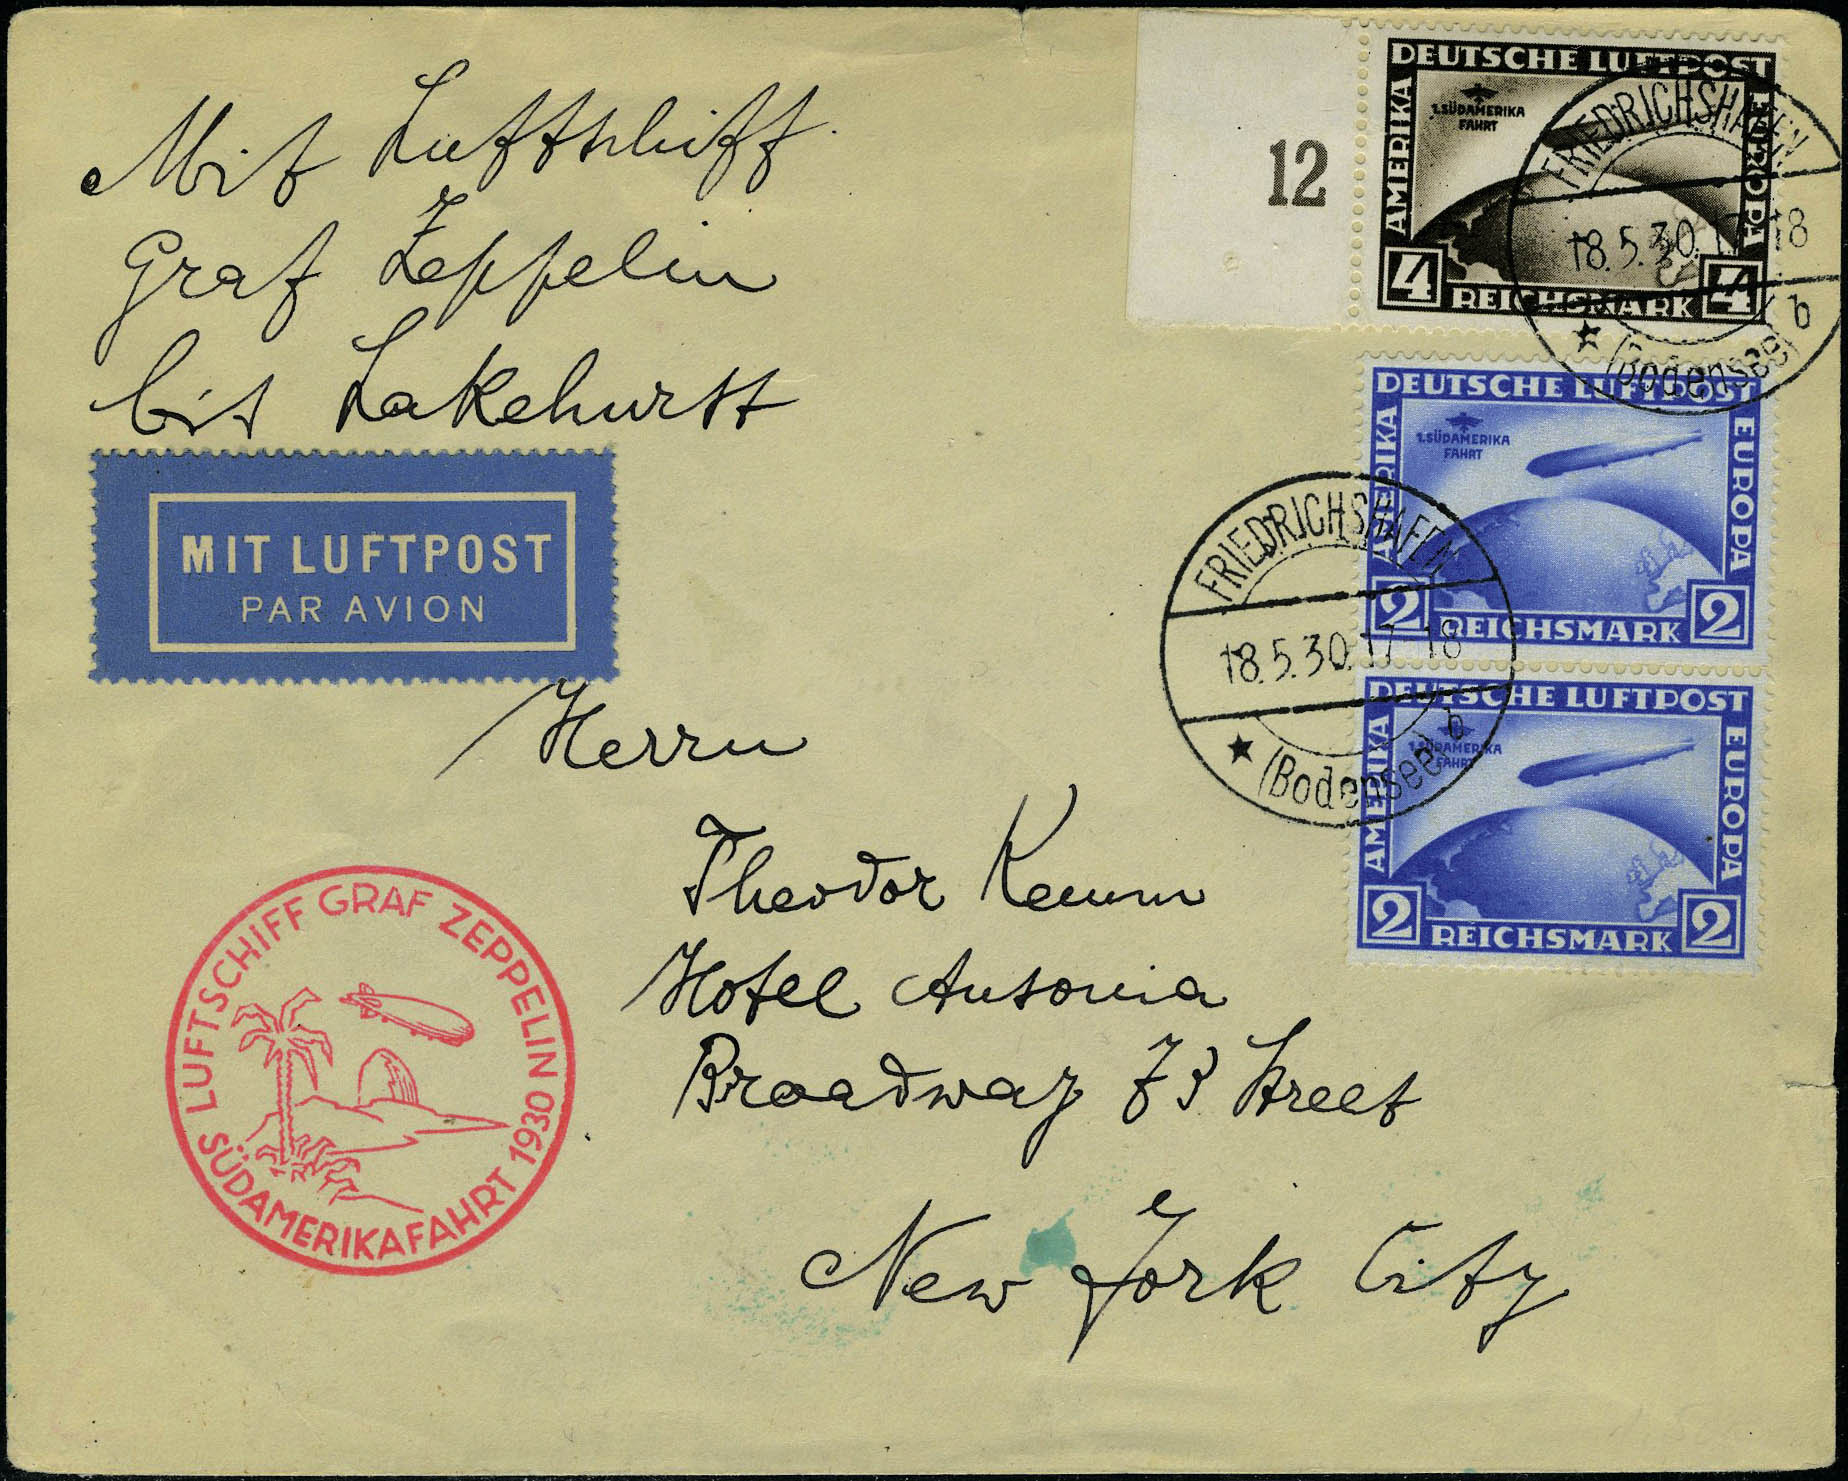 Mit Luftschiff
Graf Zeppelin
bis Lakehurst
MIT LUFTPOST
PAR AVION
12
DEUTSCHE LUFTPOST
AMERIKA
EUROPA
1.SÜDAMERIKA
FAHRT
4 REICHSMARK 4
FRIEDRICHSHAFEN
18.5.30.17-18
b
(Bodensee)
DEUTSCHE LUFTPOST
AMERIKA
EUROPA
1.SÜDAMERIKA
FAHRT
2 REICHSMARK 2
FRIEDRICHSHAFEN
18.5.30.17-18
b
(Bodensee)
DEUTSCHE LUFTPOST
AMERIKA
EUROPA
1.SÜDAMERIKA
FAHRT
2 REICHSMARK 2
Herrn
Theodor
Hotel Ausonia
Broadway 73 Street
New York City
LUFTSCHIFF GRAF ZEPPELIN
SÜDAMERIKAFAHRT 1930